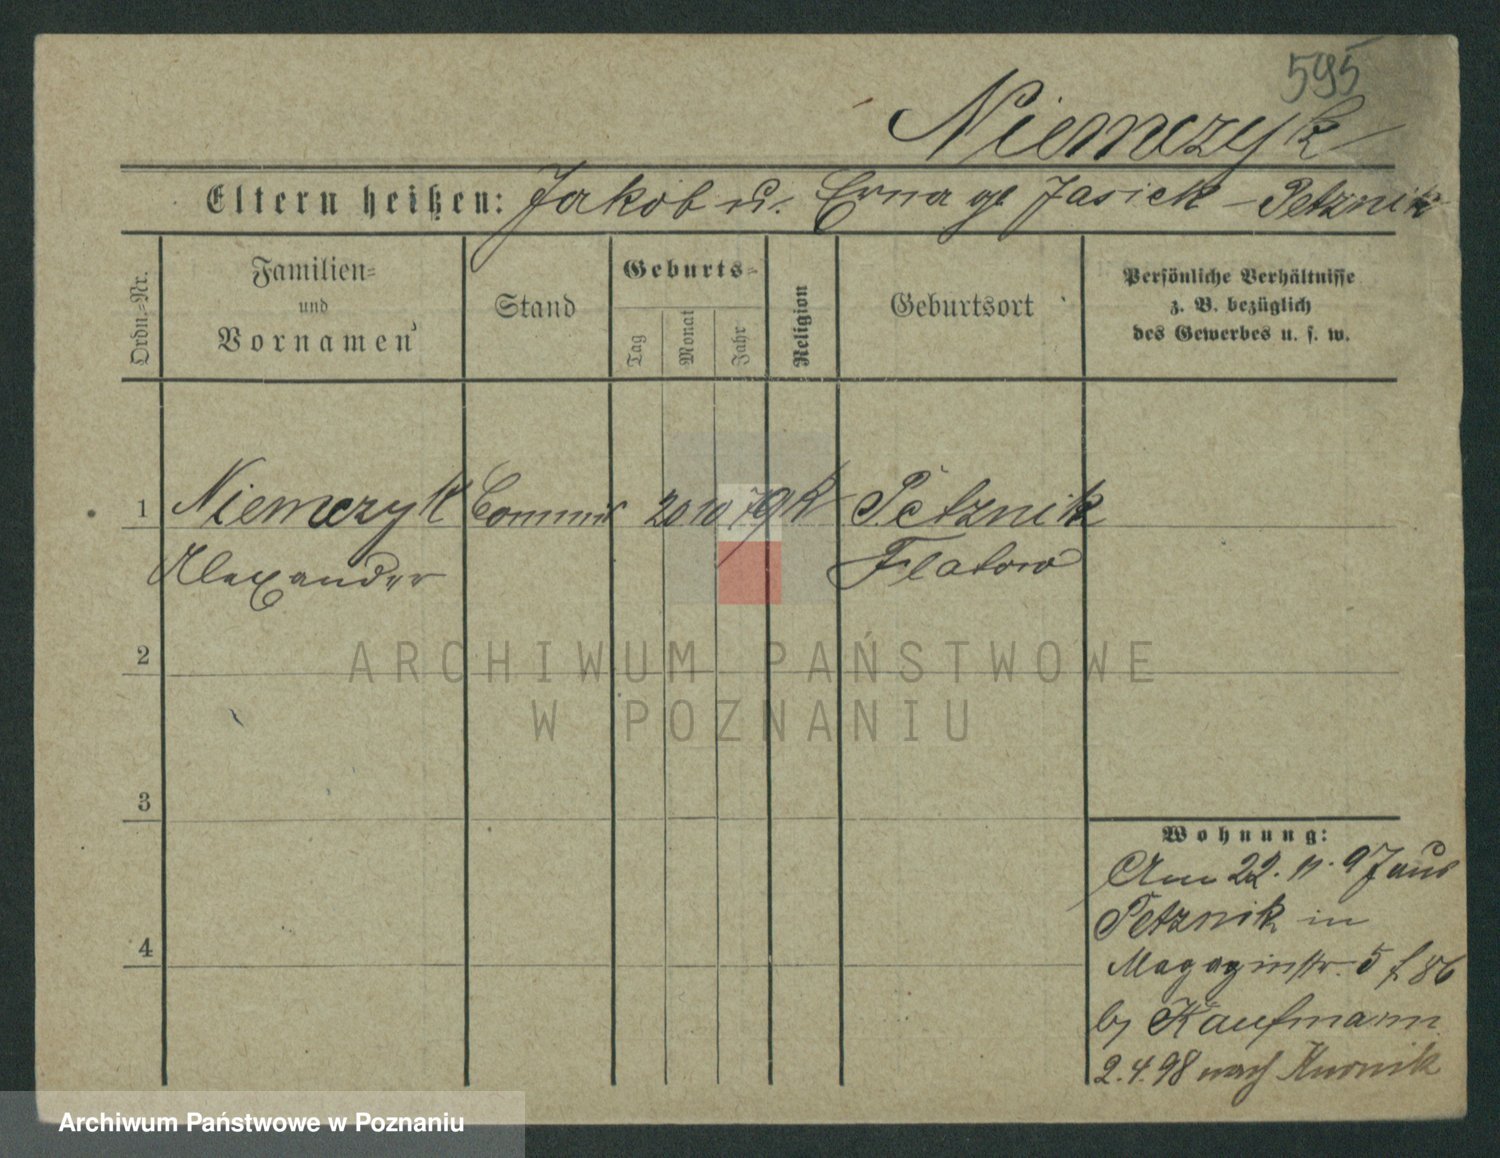 595
Niemczyk
Eltern heißen: Jakob u. Erna gb Jasiek - Petznik
Ordn.=Nr.
Familien=
und
Vornamen
Stand
Geburts=
Tag
Monat
Jahr
Religion
Geburtsort
Persönliche Verhältnisse
z. B. bezüglich
des Gewerbes u. s. w.
1 Niemczyk Commis 20 10 79 K Petznik
Alexander Flatow
2
3
4
Wohnung:
Am 22. 11. 97 aus
Petznik in
Magazinstr. 5
b/ Kaufmann
2.4.98 nach Kurnik
ARCHIWUM PAŃSTWOWE
W POZNANIU
Archiwum Państwowe w Poznaniu